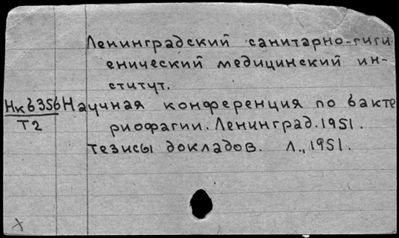 Ленинградский санитарно-гиги
енический медицинский ин-
ститут.
Нк6356 Научная конференция по бакте
Т2 риофагии. Ленинград. 1951.
Тезисы докладов. Л., 1951.
x